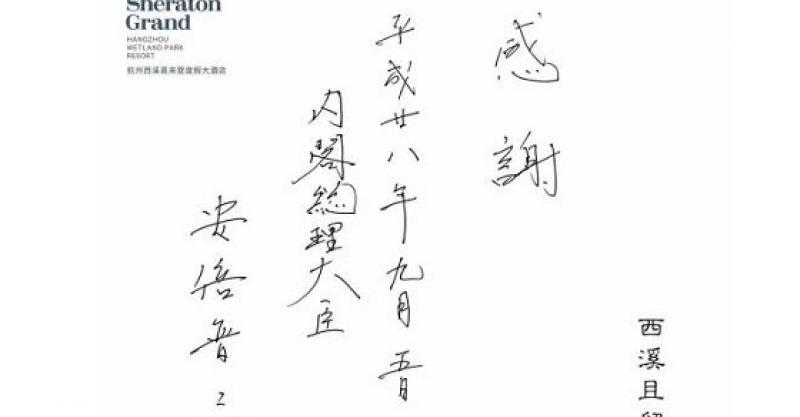 Sheraton
Grand
HANGZHOU
WETLAND PARK
RESORT
杭州西溪喜来登度假大酒店
感謝
平成廿八年九月五日
内閣総理大臣
安倍晋
西溪且留